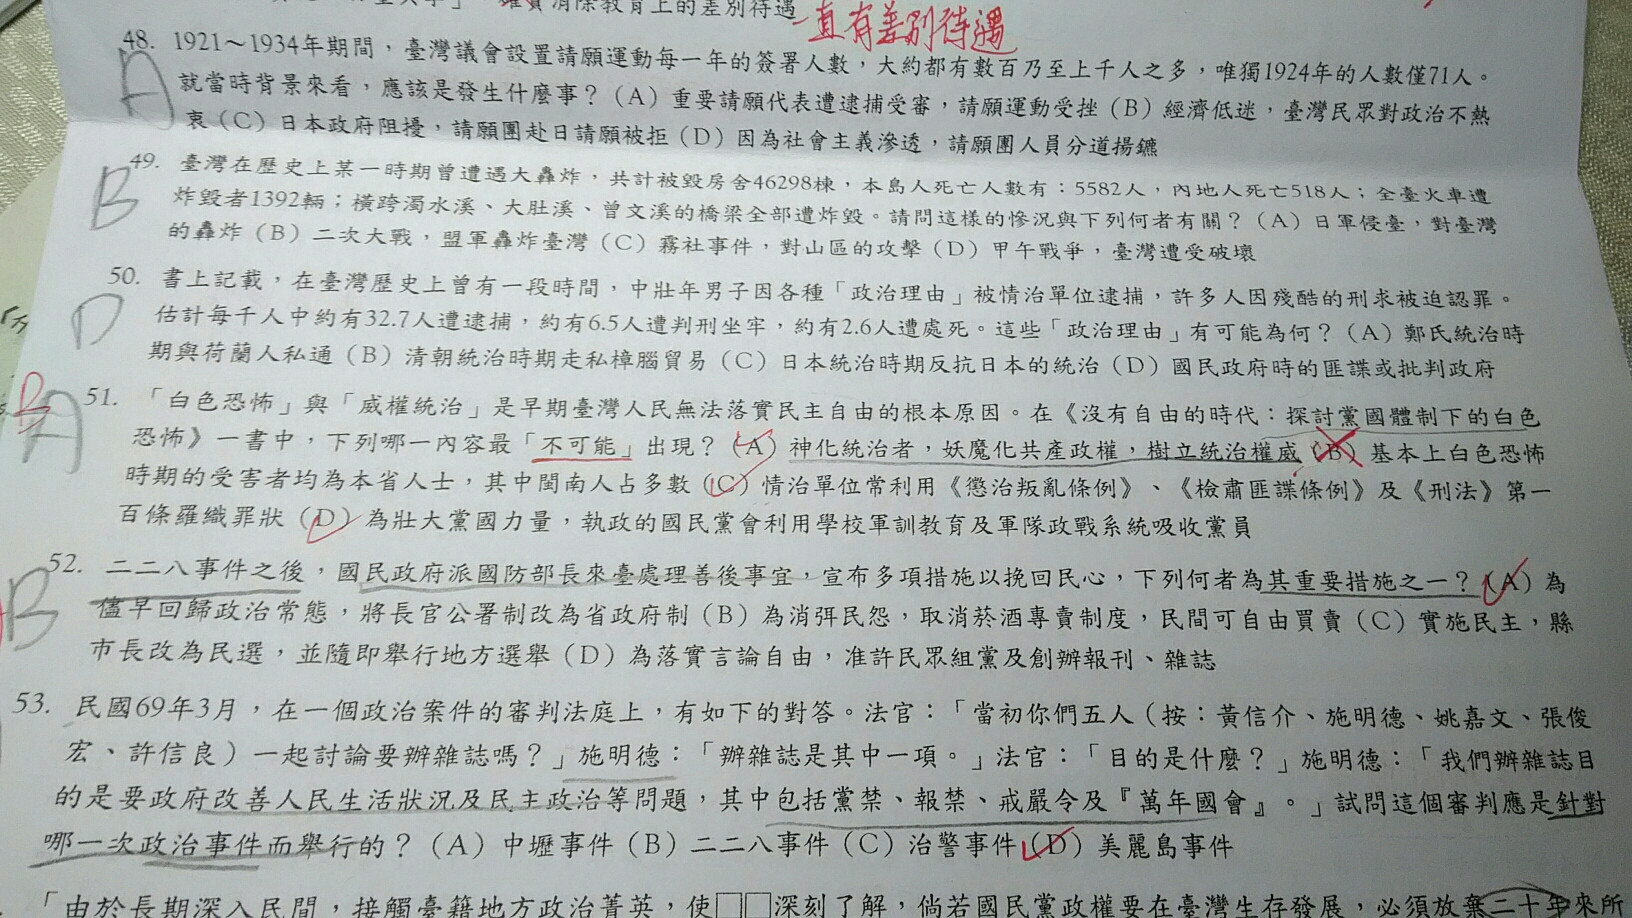 確實消除教育上的差別待遇
一直有差別待遇
48. 1921～1934年期間，臺灣議會設置請願運動每一年的簽署人數，大約都有數百乃至上千人之多，唯獨1924年的人數僅71人。
A
就當時背景來看，應該是發生什麼事？（A）重要請願代表遭逮捕受審，請願運動受挫（B）經濟低迷，臺灣民眾對政治不熱
衷（C）日本政府阻撓，請願團赴日請願被拒（D）因為社會主義滲透，請願團人員分道揚鑣
49. 臺灣在歷史上某一時期曾遭遇大轟炸，共計被毀房舍46298棟，本島人死亡人數有：5582人，內地人死亡518人；全臺火車遭
B
炸毀者1392輛；橫跨濁水溪、大肚溪、曾文溪的橋梁全部遭炸毀。請問這樣的慘況與下列何者有關？（A）日軍侵臺，對臺灣
的轟炸（B）二次大戰，盟軍轟炸臺灣（C）霧社事件，對山區的攻擊（D）甲午戰爭，臺灣遭受破壞
50. 書上記載，在臺灣歷史上曾有一段時間，中壯年男子因各種「政治理由」被情治單位逮捕，許多人因殘酷的刑求被迫認罪。
D
估計每千人中約有32.7人遭逮捕，約有6.5人遭判刑坐牢，約有2.6人遭處死。這些「政治理由」有可能為何？（A）鄭氏統治時
期與荷蘭人私通（B）清朝統治時期走私樟腦貿易（C）日本統治時期反抗日本的統治（D）國民政府時的匪諜或批判政府
B
A
51. 「白色恐怖」與「威權統治」是早期臺灣人民無法落實民主自由的根本原因。在《沒有自由的時代：探討黨國體制下的白色
恐怖》一書中，下列哪一內容最「不可能」出現？（A）神化統治者，妖魔化共產政權，樹立統治權威（B）基本上白色恐怖
時期的受害者均為本省人士，其中閩南人占多數（C）情治單位常利用《懲治叛亂條例》、《檢肅匪諜條例》及《刑法》第一
百條羅織罪狀（D）為壯大黨國力量，執政的國民黨會利用學校軍訓教育及軍隊政戰系統吸收黨員
52. 二二八事件之後，國民政府派國防部長來臺處理善後事宜，宣布多項措施以挽回民心，下列何者為其重要措施之一？（A）為
B
儘早回歸政治常態，將長官公署制改為省政府制（B）為消弭民怨，取消菸酒專賣制度，民間可自由買賣（C）實施民主，縣
市長改為民選，並隨即舉行地方選舉（D）為落實言論自由，准許民眾組黨及創辦報刊、雜誌
53. 民國69年3月，在一個政治案件的審判法庭上，有如下的對答。法官：「當初你們五人（按：黃信介、施明德、姚嘉文、張俊
宏、許信良）一起討論要辦雜誌嗎？」施明德：「辦雜誌是其中一項。」法官：「目的是什麼？」施明德：「我們辦雜誌目
的是要政府改善人民生活狀況及民主政治等問題，其中包括黨禁、報禁、戒嚴令及『萬年國會』。」試問這個審判應是針對
哪一次政治事件而舉行的？（A）中壢事件（B）二二八事件（C）治警事件（D）美麗島事件
「由於長期深入民間，接觸臺籍地方政治菁英，使□□深刻了解，倘若國民黨政權要在臺灣生存發展，必須放棄二十年來所